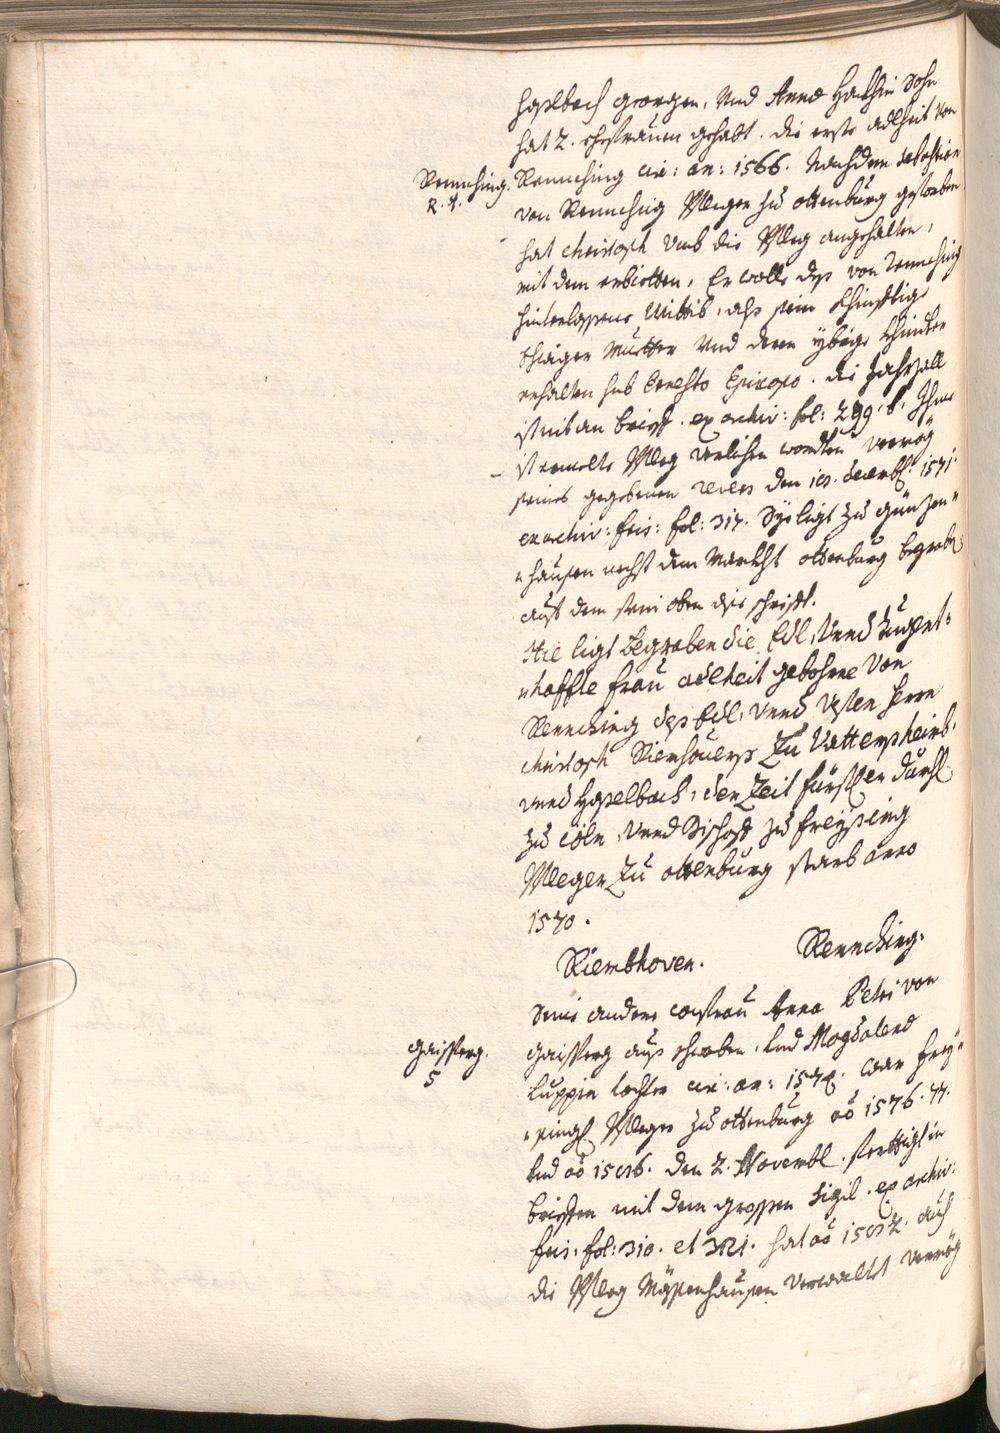 Haslbach Georgen, Und Anna Hackhin Sohn
hat 2. ehefrauen gehabt. die erste adlheit von
Rennching. Rennching cir: an: 1566. Nachdem Sebastian
R. 4. von Rennching Pfleger zu ottenburg gestorben
hat Christoph umb die Pfleg angehalten,
mit dem erbietten, Er wolle deß von Rennching
hinterlassene Wittib, alß sein khinfftige
Schwiger Mutter und deren ybrige khinder
erhalten sub Ernesto Episcopo. die Jahrzall
ist nit an brieff. ex archiv: fol: 299. b. Ihme
ist remelte Pfleg verlihen worden vermög
seines gegebenen revers den decemb: 1571.
ex archiv: fris: fol: 317. Sye ligt zu Günzen=
=hausen nechst dem Markht ottenburg begraben
auf dem stein oben dise schrifft.
Hie ligt Begraben die Edl, Vnnd Tugent=
=haffte Frau adlheit gebohrne Von
Rennching deß Edl, Vnnd Vesten Herrn
Christoph Riemhovers Zu Vatterßheimb,
vnnd Haselbach, der Zeit fürstler durchl
zu Cöln, Vnnd Bischoff zu Freysing
Pfleger Zu ottenburg starb anno
1570.
Riembhoven. Rennching.
Seine andere Anna Petri von
Gaissperg. Gaissperg auß schwaben, und Magdalena
5 Luppin tochter cir: an: war Frey=
=singl Pfleger zu ottenburg aõ 1576. 77.
und aõ den 2. Novembl. ferttigt in
brieffen mit dem grossen Sigil. ex archiv:
fris: fol: 310. et 321. hat aõ auch
die Pfleg Mässenhausen verwaltet vermög